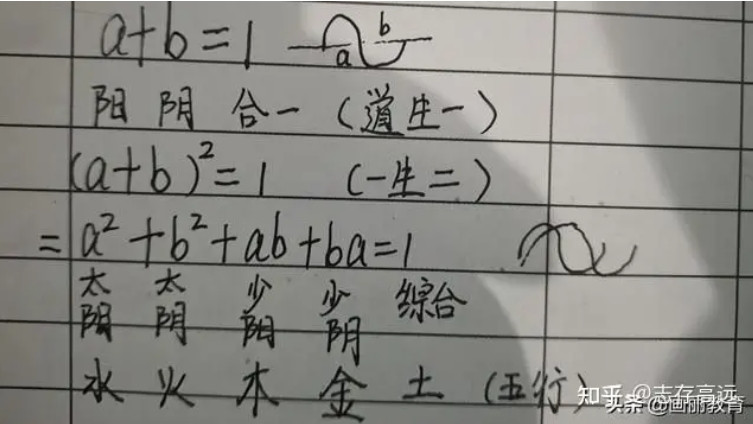 a+b=1 a b
阳 阴 合一 (道生一)
(a+b)²=1 (一生二)
=a²+b²+ab+ba=1
太阳 太阴 少阳 少阴 综合
水 火 木 金 土 (五行)
知乎 @志存高远
头条 @画丽教育